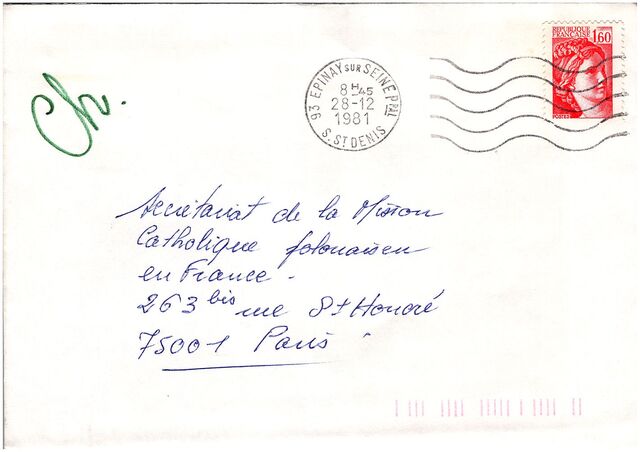 Ch.
93 EPINAY SUR SEINE PPAL
8H45
28-12
1981
S. ST DENIS
REPUBLIQUE
FRANCAISE
1,60
Secrétariat de la Mission
Catholique polonaisen
en France -
263 bis rue St Honoré
75001 Paris